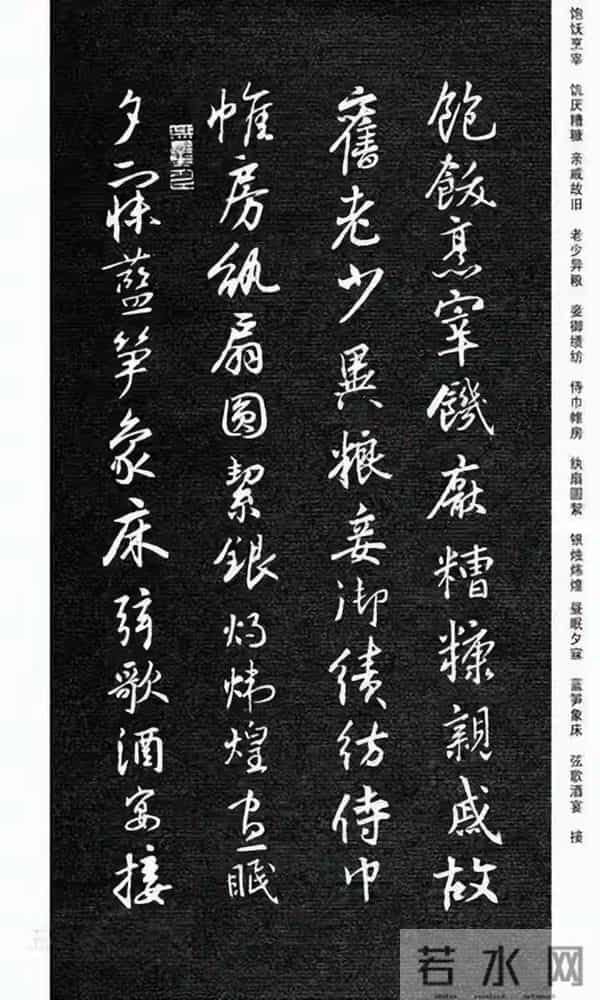 饱饫烹宰 饥厌糟糠 亲戚故旧 老少异粮 妾御绩纺 侍巾帷房 纨扇圆絜 银烛炜煌 昼眠夕寐 蓝笋象床 弦歌酒宴 接
飽飫烹宰饑厭糟糠親戚故
舊老少異粮妾御績紡侍巾
帷房紈扇圓絜銀燭煒煌晝眠
夕寐藍笋象床弦歌酒宴接
若水网